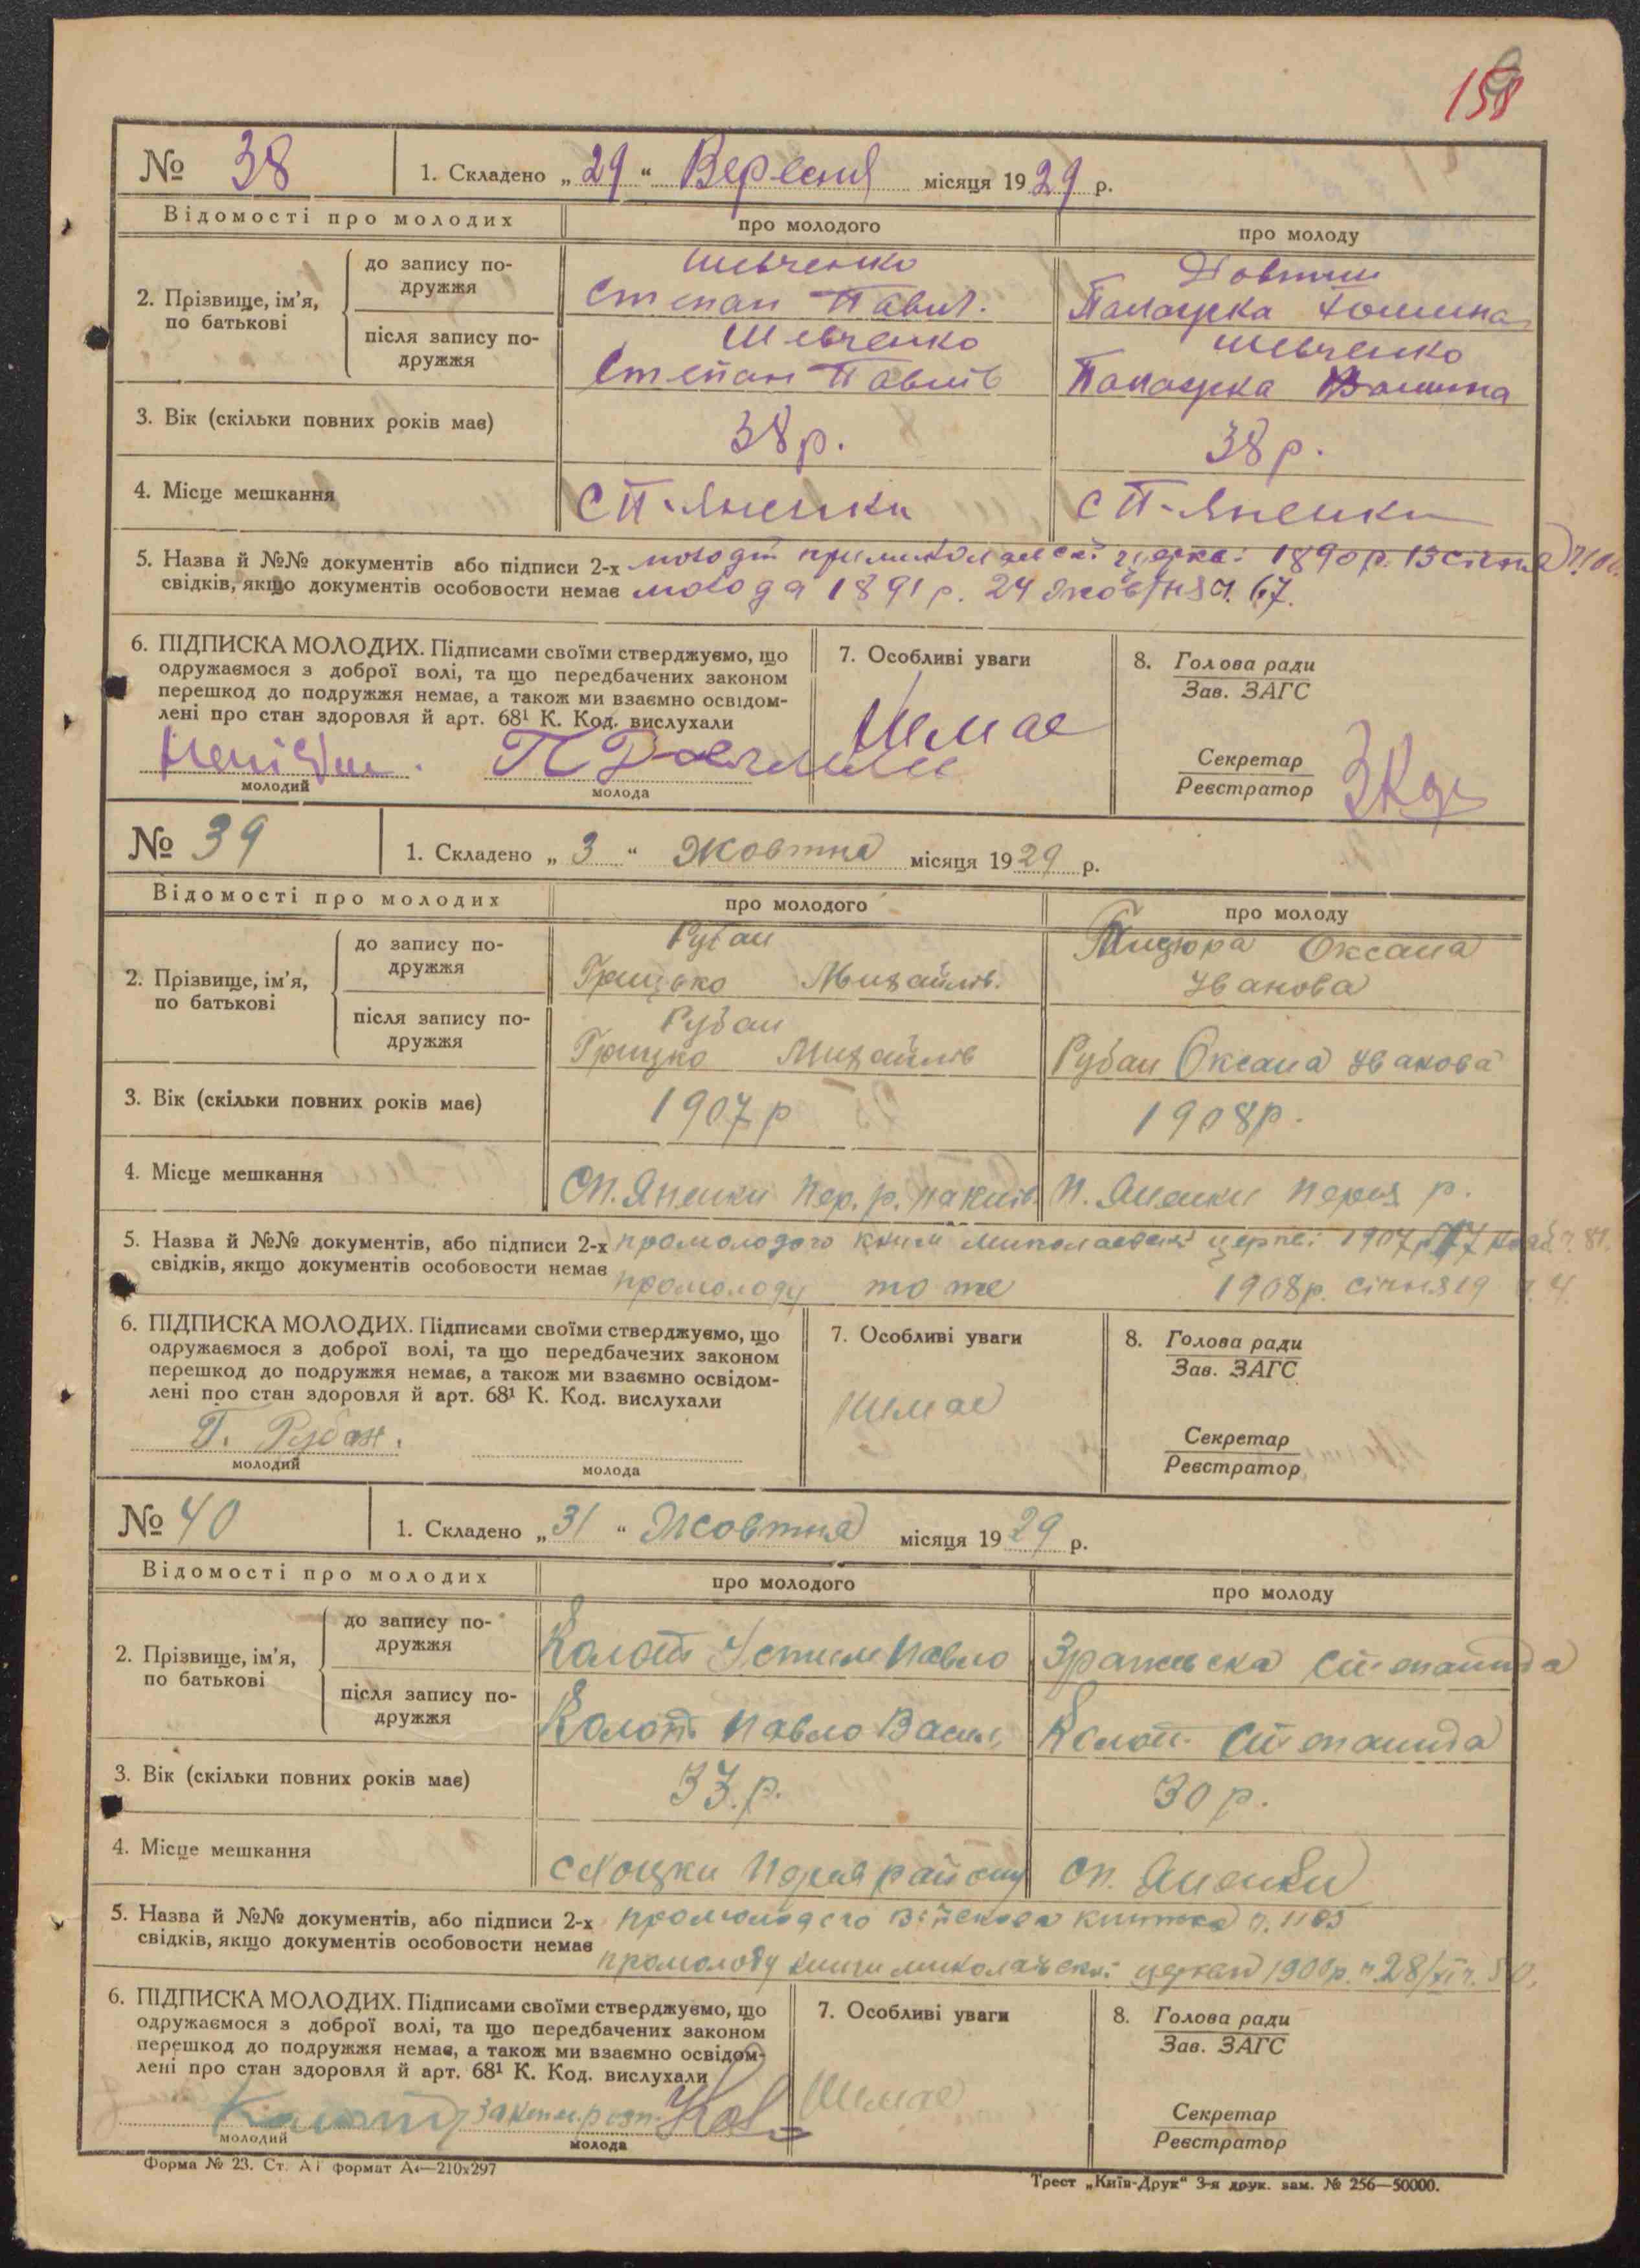 158
№ 38 1. Складено „29“ Вересня місяця 1929 р.
Відомості про молодих про молодого про молоду
2. Прізвище, ім'я, по батькові
до запису подружжя
Шевченко
Степан Павл.
Палажка
після запису подружжя
Шевченко
Степан Павлів
Шевченко
Палажка
3. Вік (скільки повних років має) 38 р. 38 р.
4. Місце мешкання С П-Яненки С П-Яненки
5. Назва й №№ документів або підписи 2-х 1890 р. 13 січня
свідків, якщо документів особовости немає молода 1891 р. 24 67.
6. ПІДПИСКА МОЛОДИХ. Підписами своїми стверджуємо, що
одружаємося з доброї волі, та що передбачених законом
перешкод до подружжя немає, а також ми взаємно освідом-
лені про стан здоровля й арт. 68¹ К. Код. вислухали
молодий молода
7. Особливі уваги
Немає
8. Голова ради
Зав. ЗАГС
Секретар
Реєстратор
№ 39 1. Складено „3“ Жовтня місяця 1929 р.
Відомості про молодих про молодого про молоду
2. Прізвище, ім'я, по батькові
до запису подружжя
Рубан
Грицько Михайлів.
Оксана
Іванова
після запису подружжя
Рубан
Грицко Михайлів
Рубан Оксана Іванова
3. Вік (скільки повних років має) 1907 р 1908 р.
4. Місце мешкання Сп. Яненки Пер. р. на Київ. П. Яненки Перея р.
5. Назва й №№ документів, або підписи 2-х про молодого книги Миколаевскі церкві 1907 р.
свідків, якщо документів особовости немає про молоду то же 1908 р. січня 19 ч. 4.
6. ПІДПИСКА МОЛОДИХ. Підписами своїми стверджуємо, що
одружаємося з доброї волі, та що передбачених законом
перешкод до подружжя немає, а також ми взаємно освідом-
лені про стан здоровля й арт. 68¹ К. Код. вислухали
Г. Рубан.
молодий молода
7. Особливі уваги
Немає
8. Голова ради
Зав. ЗАГС
Секретар
Реєстратор
№ 40 1. Складено „31“ Жовтня місяця 1929 р.
Відомості про молодих про молодого про молоду
2. Прізвище, ім'я, по батькові
до запису подружжя
Колот Устим Павло
Степанида
після запису подружжя
Колот Павло Васил.
Колот Степанида
3. Вік (скільки повних років має) 33. р. 30 р.
4. Місце мешкання с Перея району Сп. Яненки
5. Назва й №№ документів, або підписи 2-х про молодого Війскова книжка ч. 1183
свідків, якщо документів особовости немає про молоду книги миколаївскі церкви 1900 р.
6. ПІДПИСКА МОЛОДИХ. Підписами своїми стверджуємо, що
одружаємося з доброї волі, та що передбачених законом
перешкод до подружжя немає, а також ми взаємно освідом-
лені про стан здоровля й арт. 68¹ К. Код. вислухали
молодий молода
7. Особливі уваги
Немає
8. Голова ради
Зав. ЗАГС
Секретар
Реєстратор
Форма № 23. Ст. А і формат А₄—210х297
Трест „Київ-Друк“ 3-я друк. зам. № 256—50000.